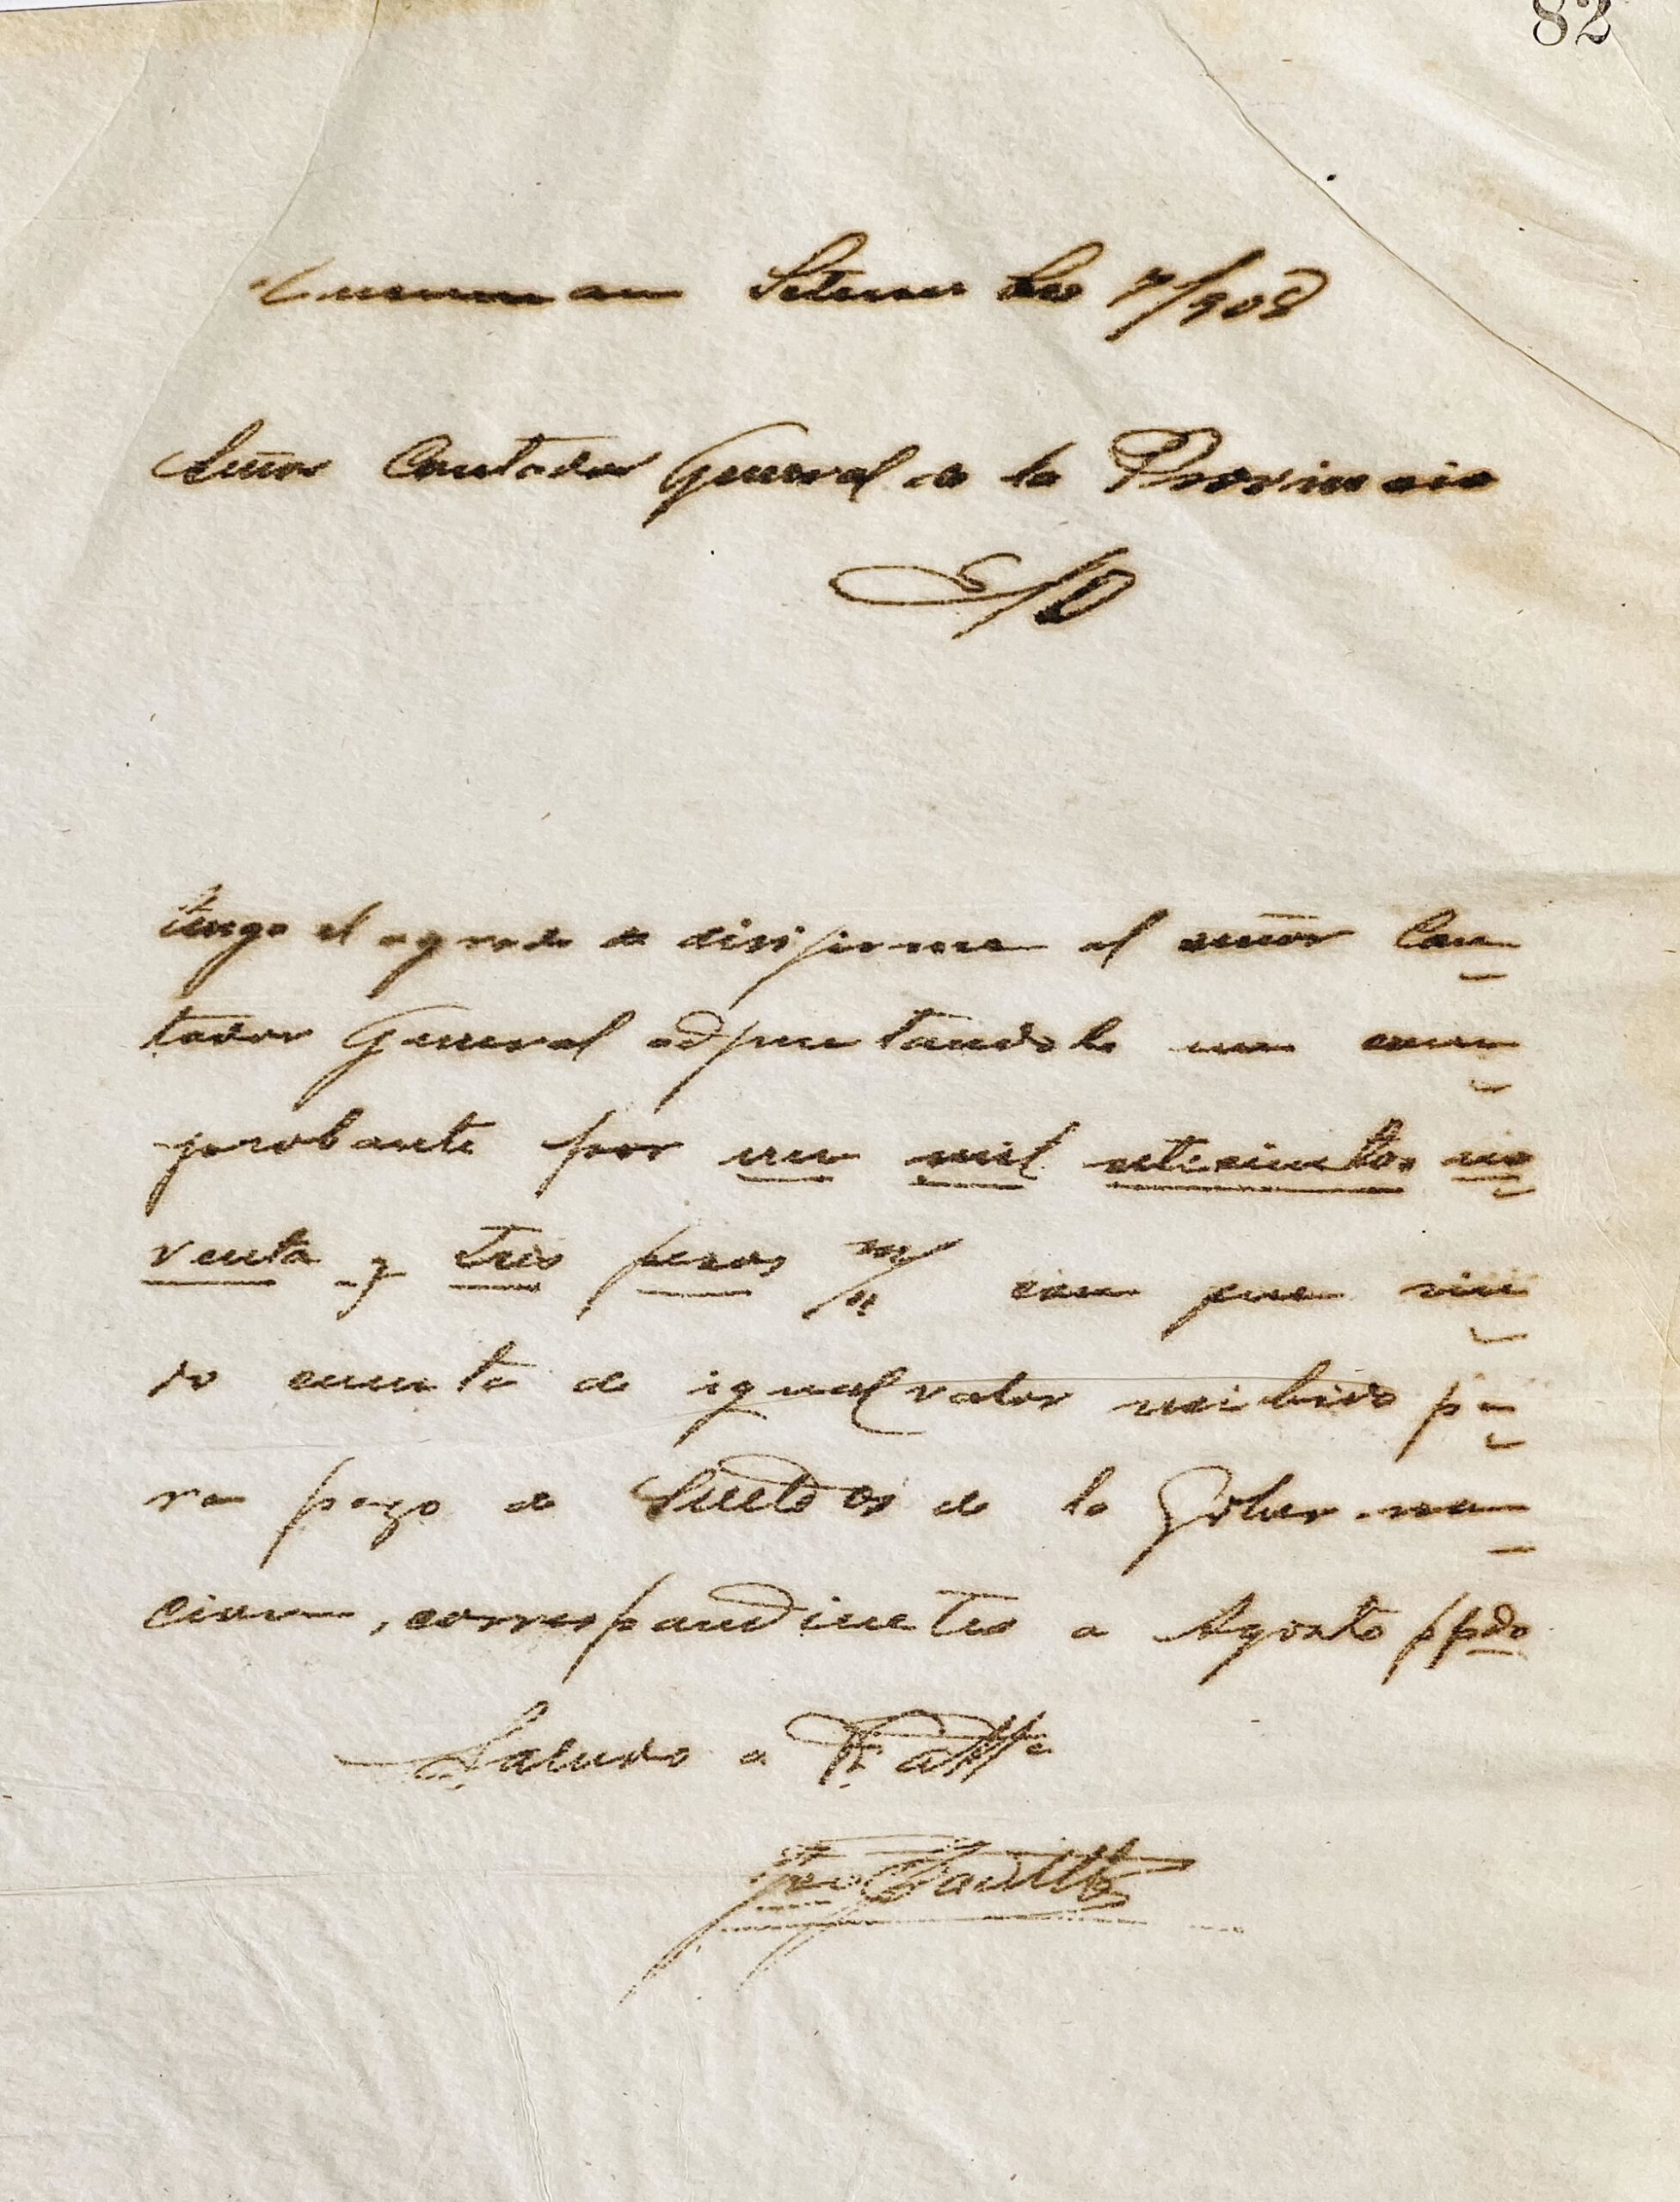 82
Tucuman Setiembre 7/908
Señor Contador General de la Provincia
S/D
Tengo el agrado de dirijirme al señor Con-
tador General adjuntandole un com-
probante por un mil setecientos no-
venta y tres pesos m/n con que rin-
do cuenta de igual valor recibido pa-
ra pago de Sueldos de la Goberna-
cion, correspondientes a Agosto ppdo
Saludo a